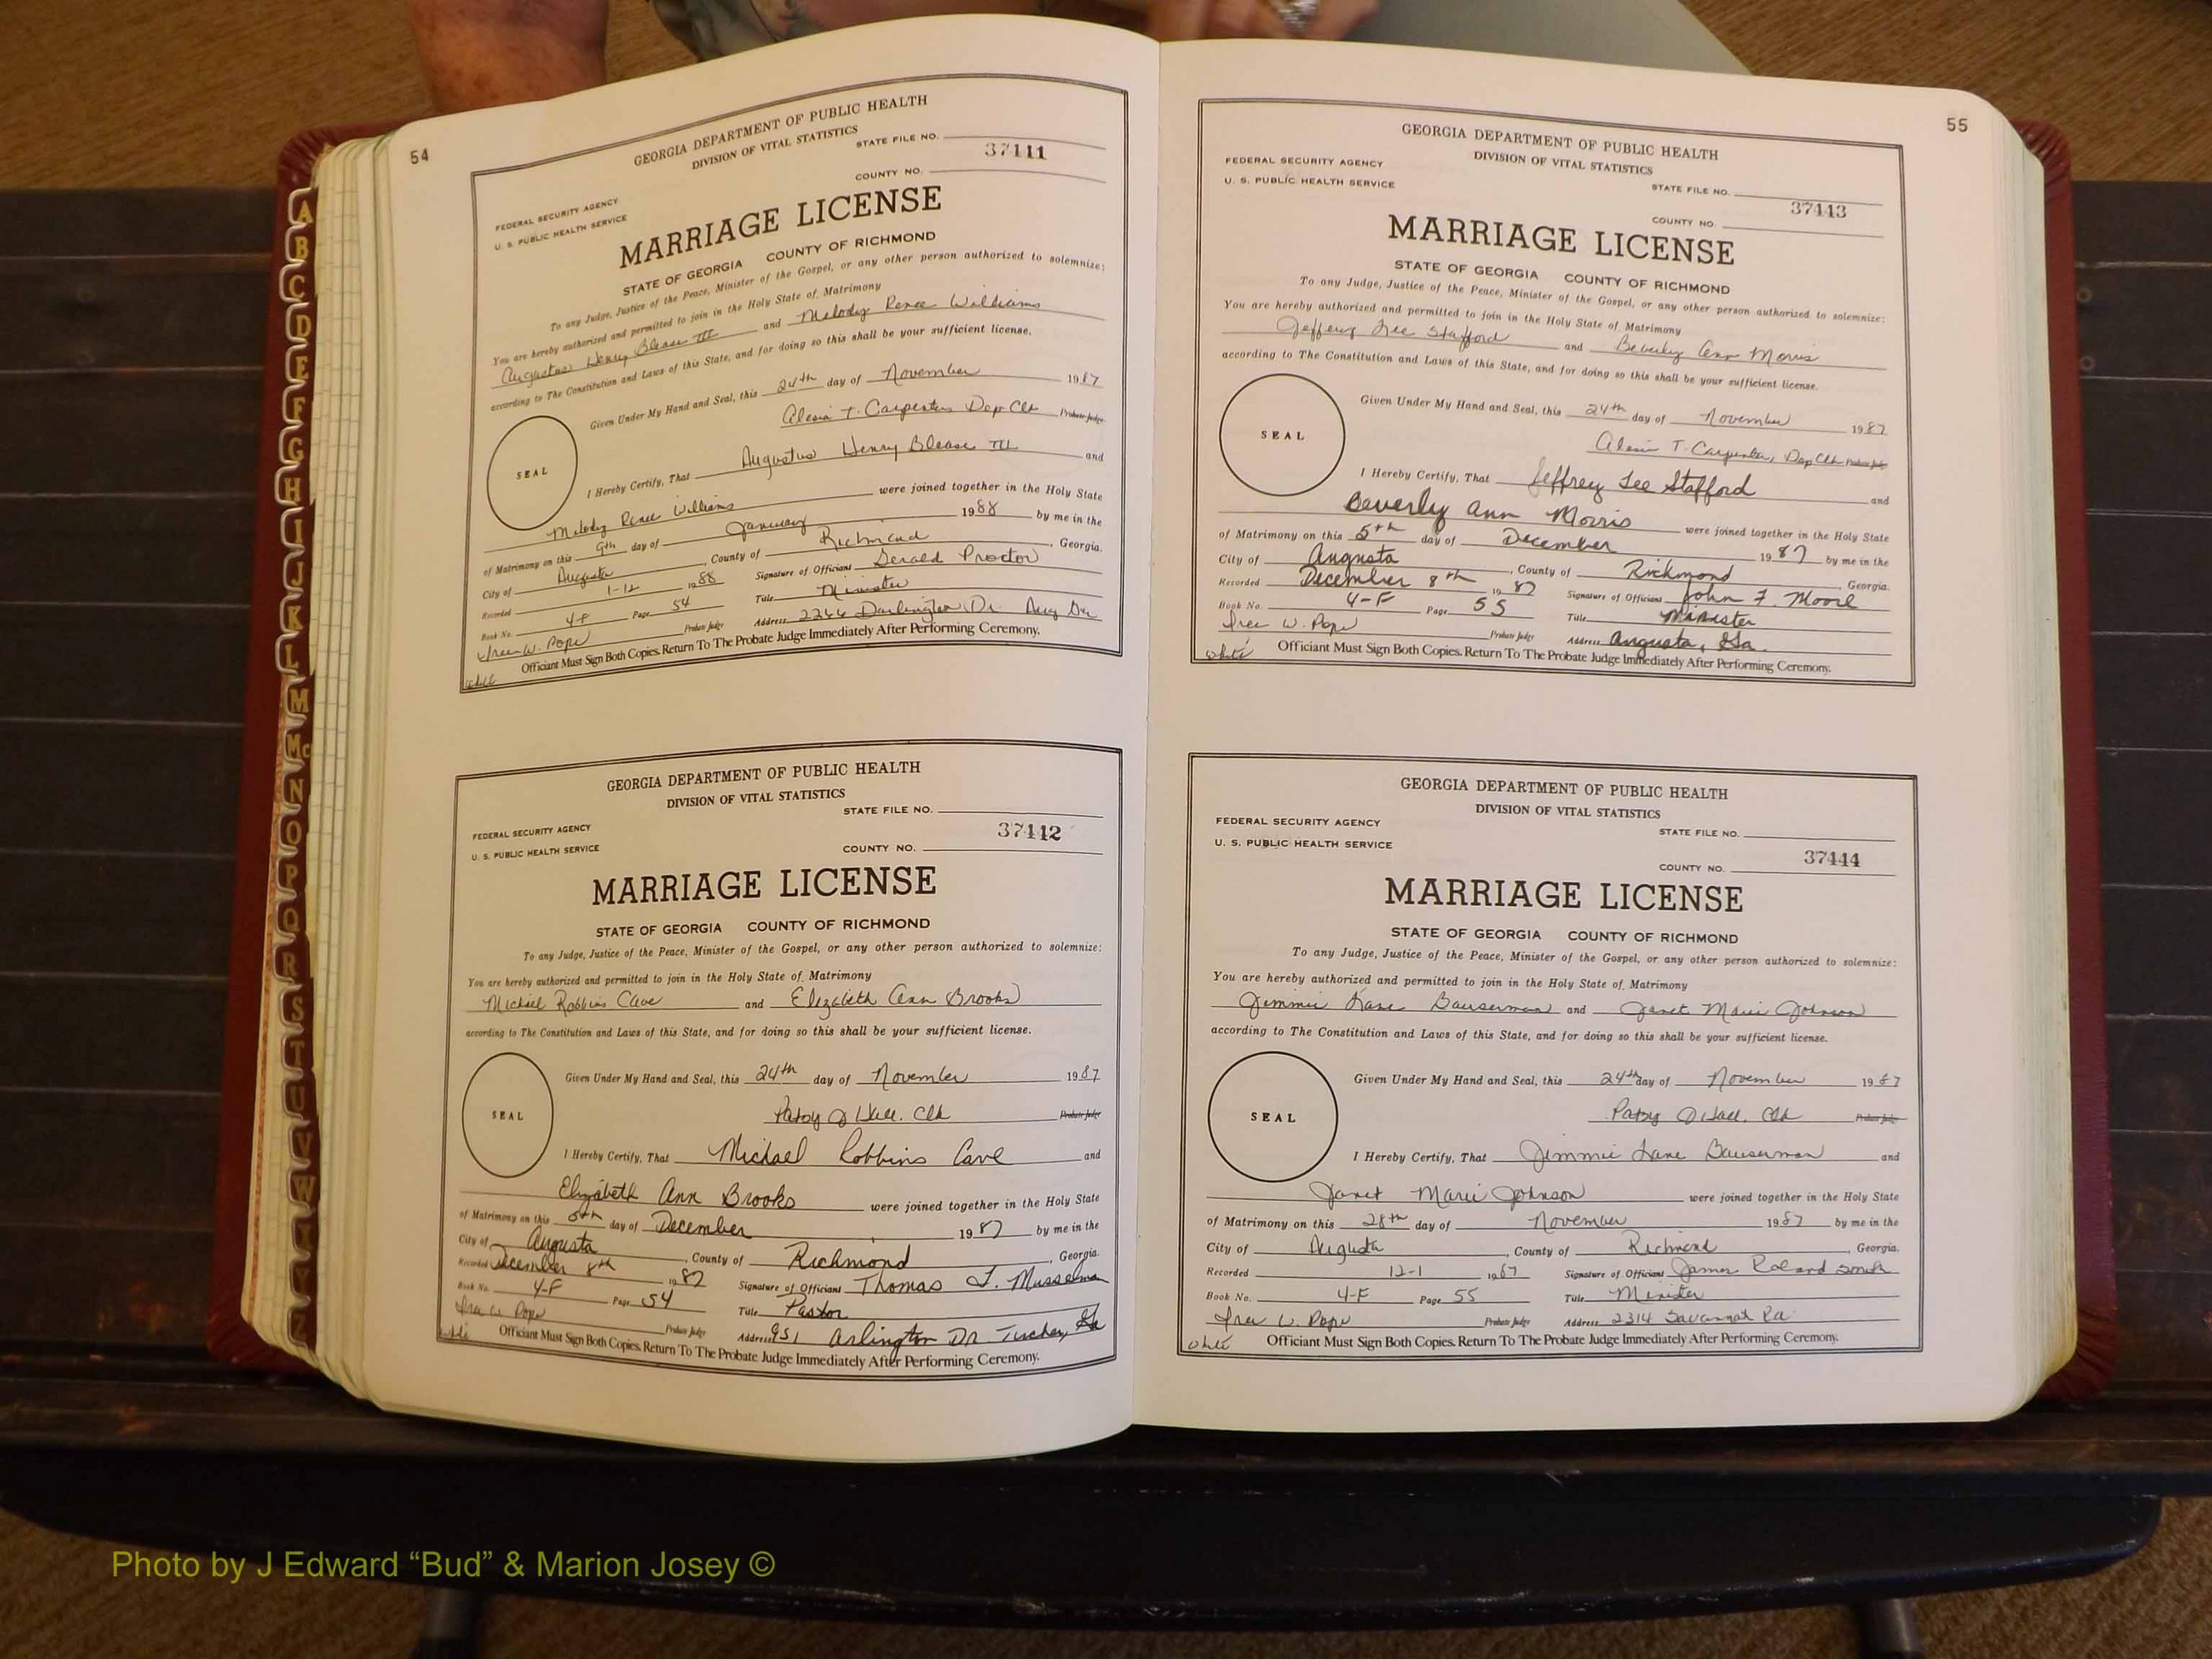 54
GEORGIA DEPARTMENT OF PUBLIC HEALTH
DIVISION OF VITAL STATISTICS
STATE FILE NO.
37111
COUNTY NO.
FEDERAL SECURITY AGENCY
U. S. PUBLIC HEALTH SERVICE
MARRIAGE LICENSE
STATE OF GEORGIA COUNTY OF RICHMOND
To any Judge, Justice of the Peace, Minister of the Gospel, or any other person authorized to solemnize:
You are hereby authorized and permitted to join in the Holy State of Matrimony
Augustus Henry Blease III and Melody Renee Williams
according to The Constitution and Laws of this State, and for doing so this shall be your sufficient license.
Given Under My Hand and Seal, this 24th day of November 1987
Alesia T. Carpenter Dep Clk Probate Judge
SEAL
I Hereby Certify, That Augustus Henry Blease III and
Melody Renee Williams were joined together in the Holy State
of Matrimony on this 9th day of January 1988 by me in the
City of Augusta, County of Richmond, Georgia.
Recorded 1-12 1988 Signature of Officiant Gerald Proctor
Book No. 4-F Page 54 Title Minister
Probate Judge Address 2266 Darlington Dr. Aug Ga
W. Pope
Officiant Must Sign Both Copies. Return To The Probate Judge Immediately After Performing Ceremony.
White
GEORGIA DEPARTMENT OF PUBLIC HEALTH
DIVISION OF VITAL STATISTICS
STATE FILE NO.
FEDERAL SECURITY AGENCY
37112
U. S. PUBLIC HEALTH SERVICE
COUNTY NO.
MARRIAGE LICENSE
STATE OF GEORGIA COUNTY OF RICHMOND
To any Judge, Justice of the Peace, Minister of the Gospel, or any other person authorized to solemnize:
You are hereby authorized and permitted to join in the Holy State of Matrimony
Michael Robbins Cave and Elizabeth Ann Brooks
according to The Constitution and Laws of this State, and for doing so this shall be your sufficient license.
Given Under My Hand and Seal, this 24th day of November 1987
Patsy Hall. Clk Probate Judge
SEAL
I Hereby Certify, That Michael Robbins Cave and
Elizabeth Ann Brooks were joined together in the Holy State
of Matrimony on this 5th day of December 1987 by me in the
City of Augusta, County of Richmond, Georgia.
Recorded December 8th 1987 Signature of Officiant Thomas J. Musselman
Book No. 4-F Page 54 Title Pastor
W. Pope Probate Judge Address 951 Arlington Dr Tucker, Ga
Officiant Must Sign Both Copies. Return To The Probate Judge Immediately After Performing Ceremony.
White
55
GEORGIA DEPARTMENT OF PUBLIC HEALTH
DIVISION OF VITAL STATISTICS
FEDERAL SECURITY AGENCY
U. S. PUBLIC HEALTH SERVICE
STATE FILE NO.
37113
COUNTY NO.
MARRIAGE LICENSE
STATE OF GEORGIA COUNTY OF RICHMOND
To any Judge, Justice of the Peace, Minister of the Gospel, or any other person authorized to solemnize:
You are hereby authorized and permitted to join in the Holy State of Matrimony
Jeffery Lee Stafford and Beverley Ann Morris
according to The Constitution and Laws of this State, and for doing so this shall be your sufficient license.
Given Under My Hand and Seal, this 24th day of November 1987
Alesia T. Carpenter, Dep Clk Probate Judge
SEAL
I Hereby Certify, That Jeffrey Lee Stafford and
Beverly Ann Morris were joined together in the Holy State
of Matrimony on this 5th day of December 1987 by me in the
City of Augusta, County of Richmond, Georgia.
Recorded December 8th 1987 Signature of Officiant John F. Moore
Book No. 4-F Page 55 Title Minister
W. Pope Probate Judge Address Augusta, Ga.
Officiant Must Sign Both Copies. Return To The Probate Judge Immediately After Performing Ceremony.
White
GEORGIA DEPARTMENT OF PUBLIC HEALTH
DIVISION OF VITAL STATISTICS
FEDERAL SECURITY AGENCY
STATE FILE NO.
U. S. PUBLIC HEALTH SERVICE
37114
COUNTY NO.
MARRIAGE LICENSE
STATE OF GEORGIA COUNTY OF RICHMOND
To any Judge, Justice of the Peace, Minister of the Gospel, or any other person authorized to solemnize:
You are hereby authorized and permitted to join in the Holy State of Matrimony
Jimmie Lane Bauserman and Janet Marie Johnson
according to The Constitution and Laws of this State, and for doing so this shall be your sufficient license.
Given Under My Hand and Seal, this 24th day of November 1987
Patsy Hall. Clk Probate Judge
SEAL
I Hereby Certify, That Jimmie Lane Bauserman and
Janet Marie Johnson were joined together in the Holy State
of Matrimony on this 28th day of November 1987 by me in the
City of Augusta, County of Richmond, Georgia.
Recorded 12-1 1987 Signature of Officiant James Roland Smith
Book No. 4-F Page 55 Title Minister
W. Pope Probate Judge Address 2314 Savannah Rd.
Officiant Must Sign Both Copies. Return To The Probate Judge Immediately After Performing Ceremony.
White
A
B
C
D
E
F
G
H
I
J
K
L
M
Mc
N
O
P
Q
R
S
T
U
V
W
X
Y
Z
Photo by J Edward “Bud” & Marion Josey ©